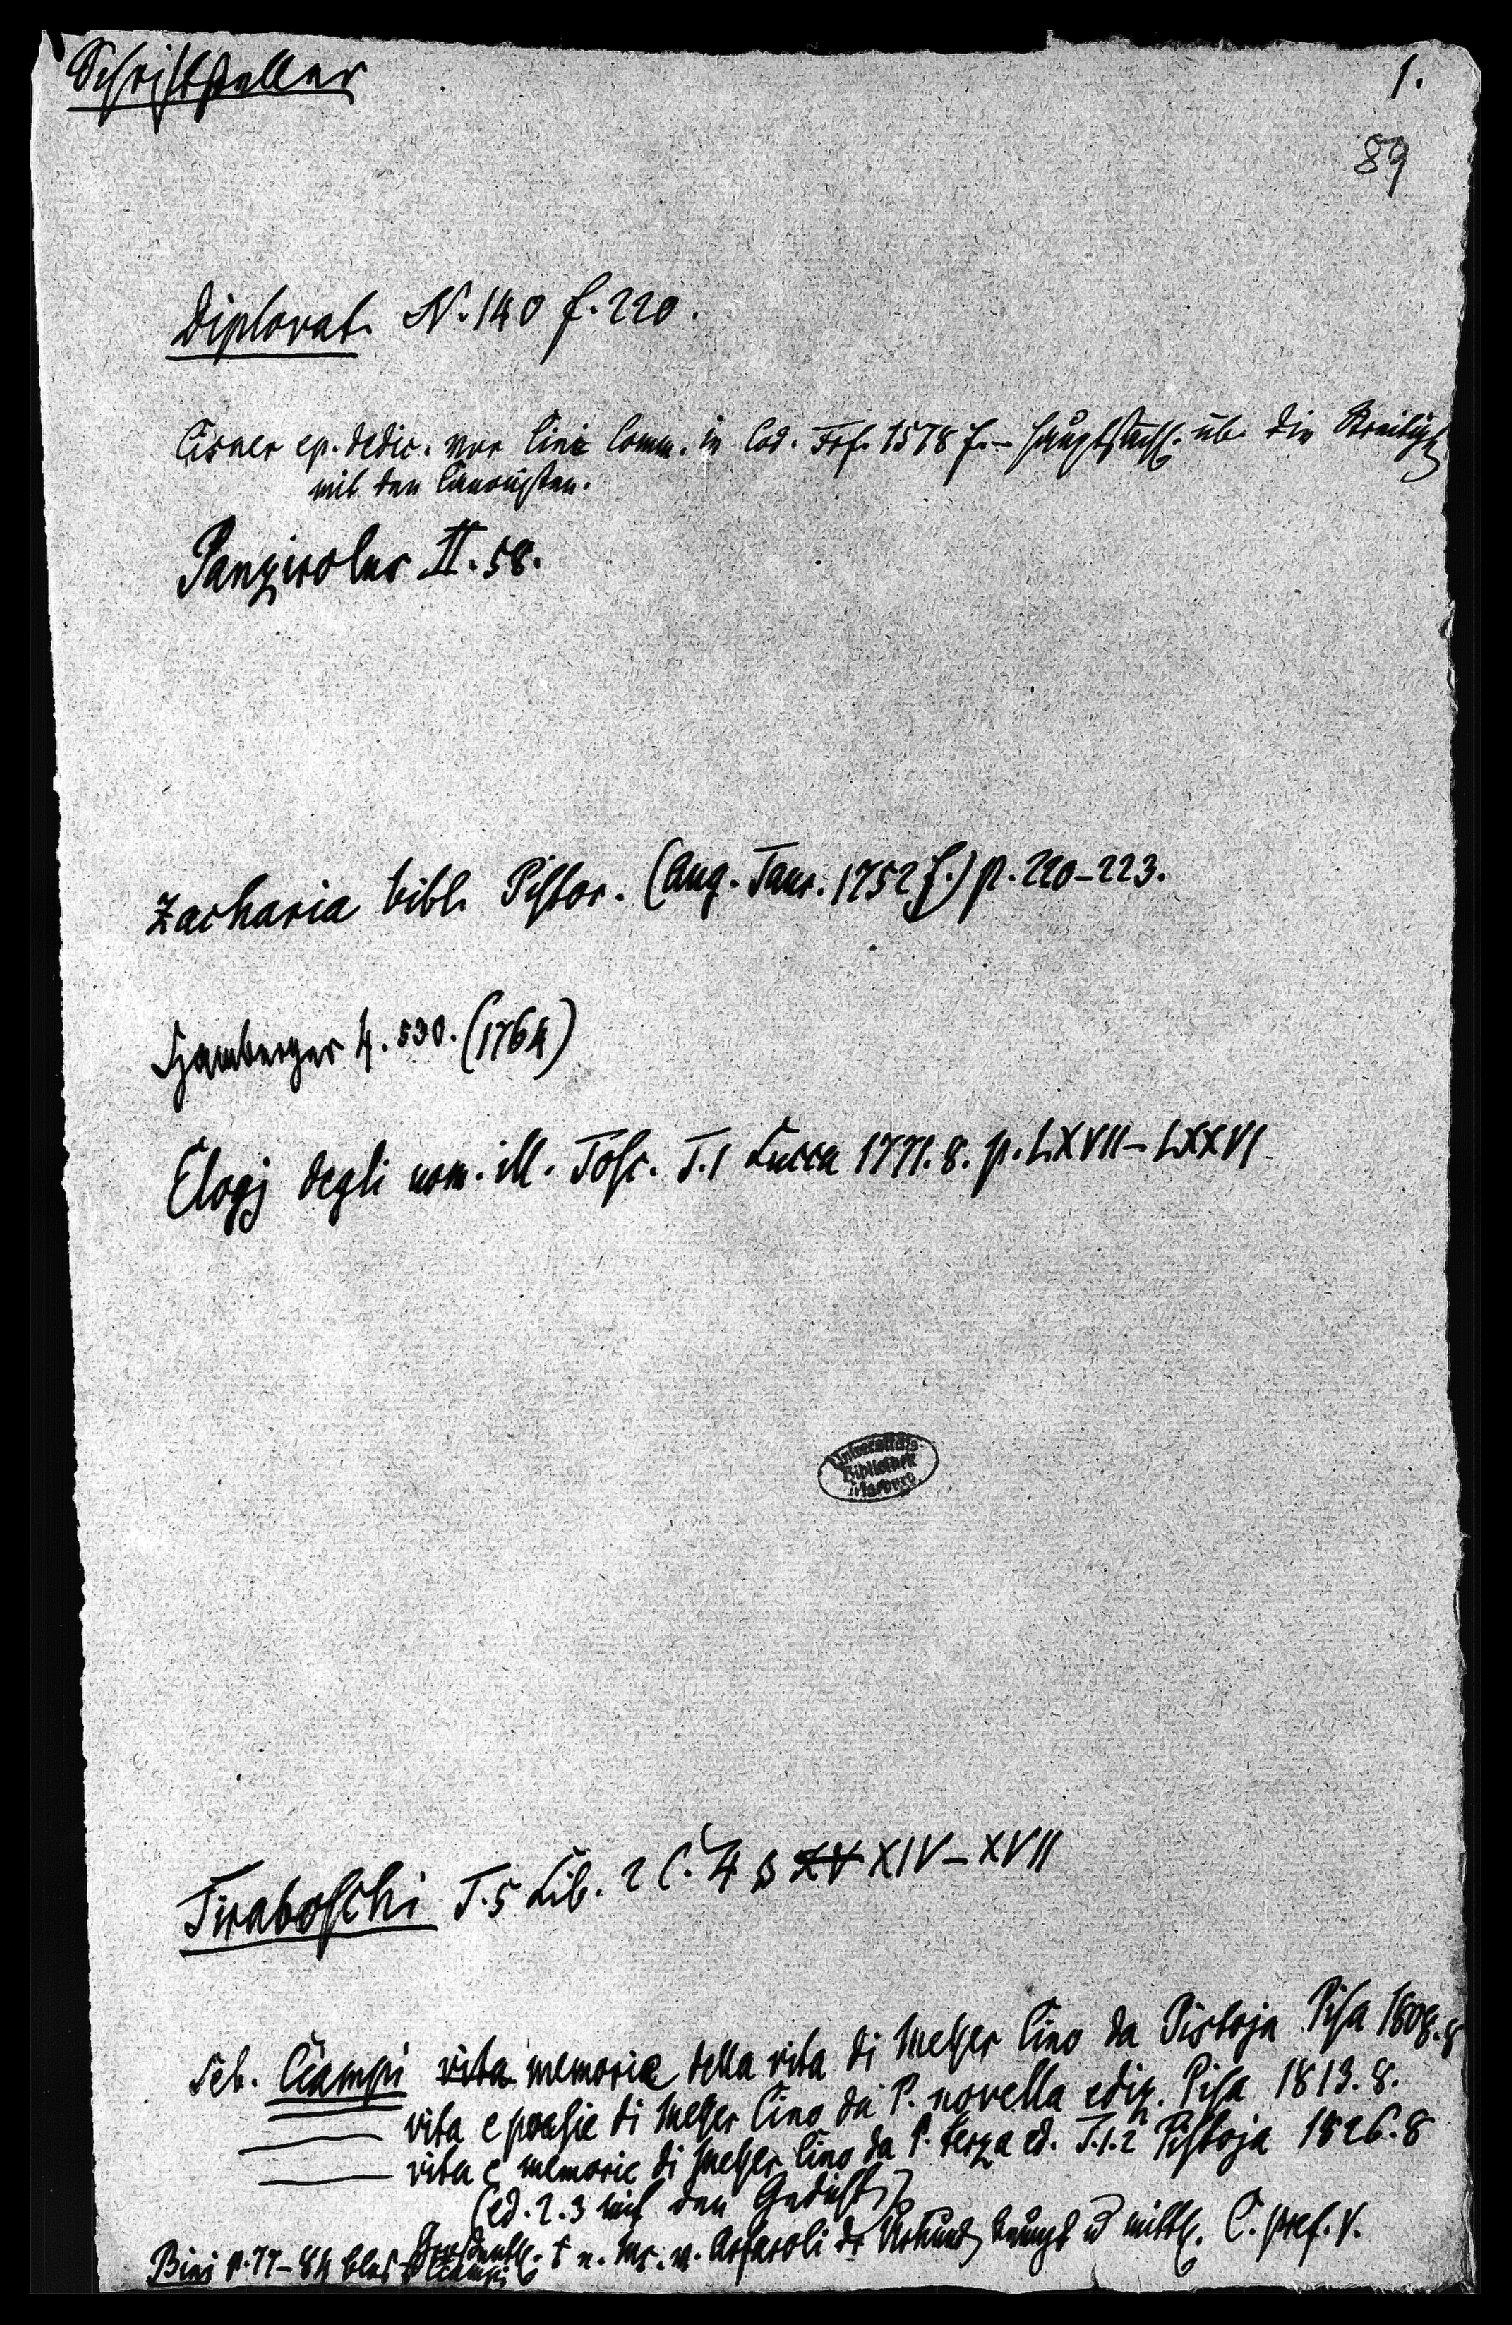 Schriftsteller
1.
89
Diplovat. N. 140 f. 220.
Cisner ep. dedic. vor Cini Comm. in Cod. Frf. 1578 f. – hauptsächl. üb. die Streitigk.
mit den Canonisten.
Panzirolus II. 58.
Zacharia bibl. Pistor. (Aug. Taur. 1752 f.) p. 220–223.
Hamberger 4. 530. (1764)
Elogj degli uom. ill. Tosc. T. 1 Lucca 1771. 8. p. LXVII–LXXVI
Universitäts-
Bibliothek
Marburg
Tiraboschi T. 5 Lib. 2 C. 4 § XV XIV–XVII
Seb. Ciampi vita memorie della vita di Messer Cino da Pistoja Pisa 1808. 8
vita e poesie di Messer Cino da P. novella ediz. Pisa 1813. 8.
vita e memorie di Messer Cino da P. terza ed. T. 1. 2 Pistoja 1826. 8
(ed. 2. 3 mit den Gedichten)
Ciampi u. Ms. v. Arfaroli der Urkunden benuzt u mitth. C. pref. V.
Bini p. 77–84 blos